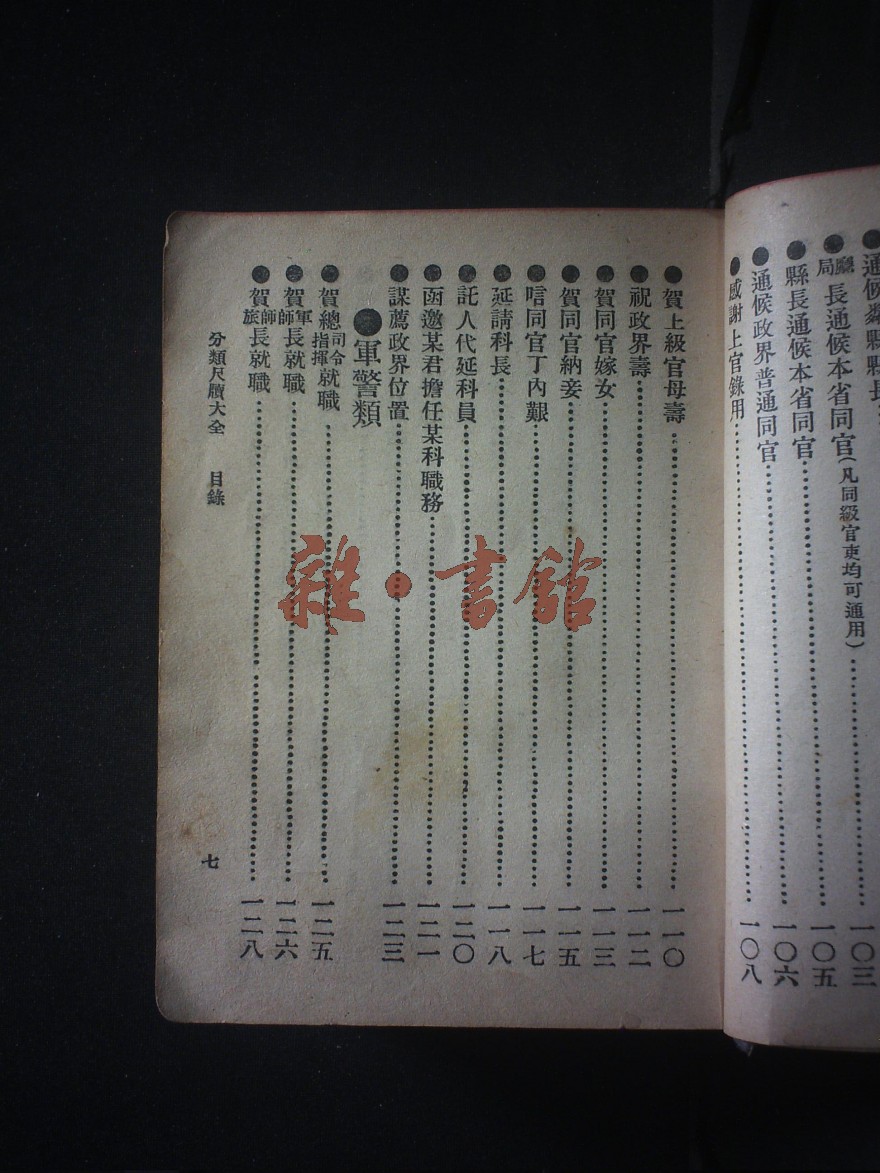 通候鄰縣縣長一〇三
●廳局長通候本省同官(凡同級官吏均可通用)一〇五
●縣長通候本省同官一〇六
●通候政界普通同官
●感謝上官錄用一〇八
●賀上級官母壽一一〇
●祝政界壽一一二
●賀同官嫁女一一三
●賀同官納妾一一五
●唁同官丁內艱一一七
●延請科長一一八
●託人代延科員一二〇
●函邀某君擔任某科職務一二一
●謀薦政界位置一二三
●軍警類
●賀總司令指揮就職一二五
●賀軍師長就職一二六
●賀師旅長就職一二八
分類尺牘大全 目錄 七
雜·書館